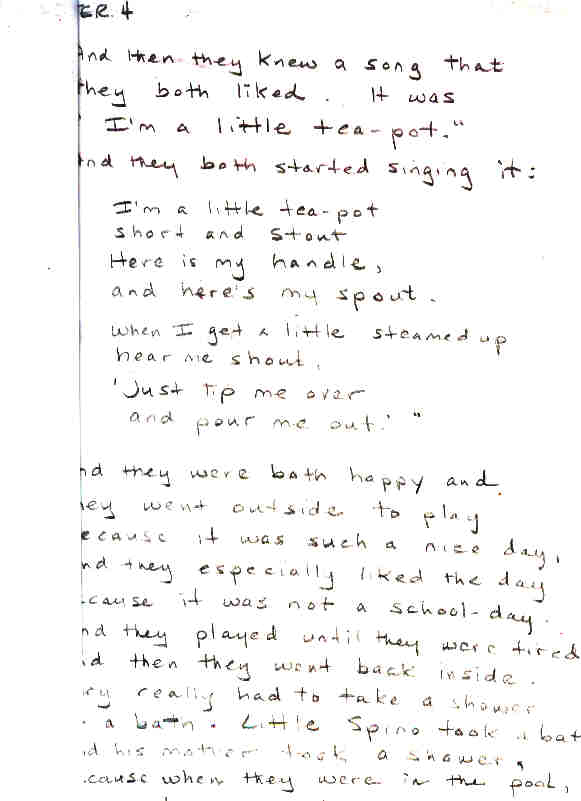 ER. 4
And then they knew a song that
they both liked. It was
"I'm a little tea-pot."
And they both started singing it:
I'm a little tea-pot
short and stout
Here is my handle,
and here's my spout.
When I get a little steamed up
hear me shout,
'Just tip me over
and pour me out.' "
nd they were both happy and
ey went outside to play
ecause it was such a nice day,
nd they especially liked the day
cause it was not a school-day.
nd they played until they were tired
d then they went back inside.
ey really had to take a shower
a bath. Little Spino took a bat
d his mother took a shower,
cause when they were in the pool,